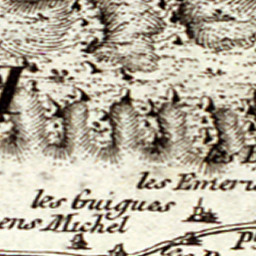 les Emeri
les Guigues
ens Michel